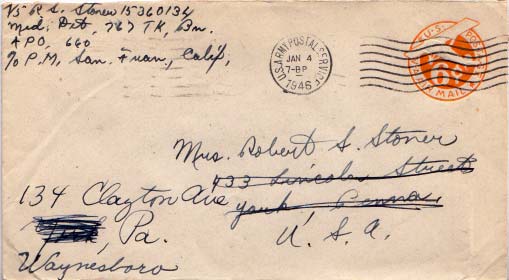 T/5 R. S. Stoner 15360134
Med. Det, 767 TK, Bn.
APO, 660
c/o P.M, San. Fran, Calif,
U.S. ARMY POSTAL SERVICE
JAN 4
7-BP
1946
U.S. POSTAGE
VIA AIR MAIL
Mrs. Robert S. Stoner
433 Lincoln Street
York, Penna,
U. S. A.
134 Clayton Ave
York, Pa.
Waynesboro